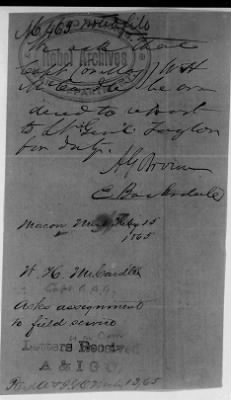 Rebel Archives
We ask that
Capt (or Maj) W H
McCardle be or
dered to report
to Lt Genl Taylor
for duty.
A G Brown
E Barksdale
Macon Miss Feby 15
1865
W. H. McCardle
Asks assignment
to field service
Letters Received
A & I G O
1865